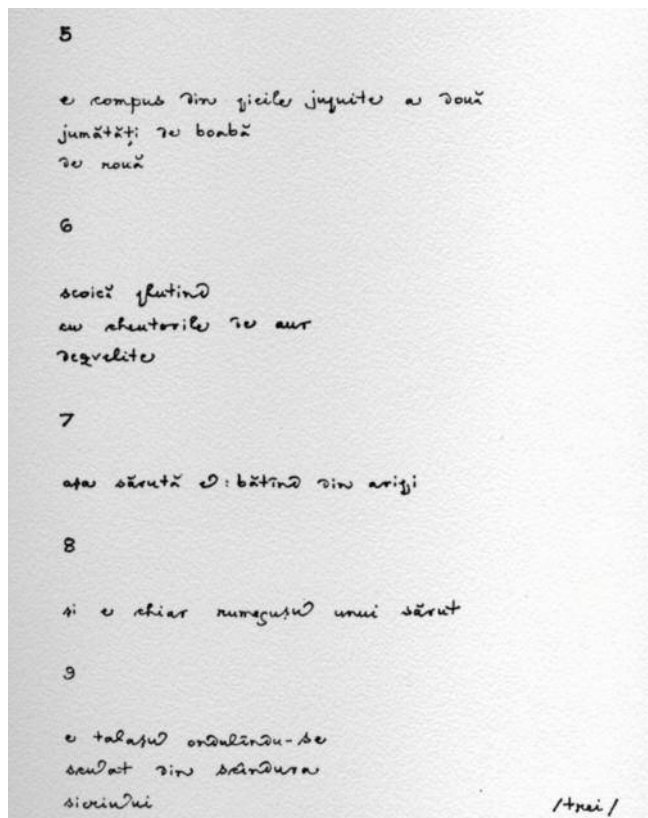 5
e compus din pieile jupuite a două
jumătăți de boabă
de rouă
6
scoică plutind
cu cheutorile de aur
dezvelite
7
așa sărută el: bătînd din aripi
8
și e chiar rumegușul unui sărut
9
e talașul ondulîndu-se
sculat din scîndura
sicriului
/trei/